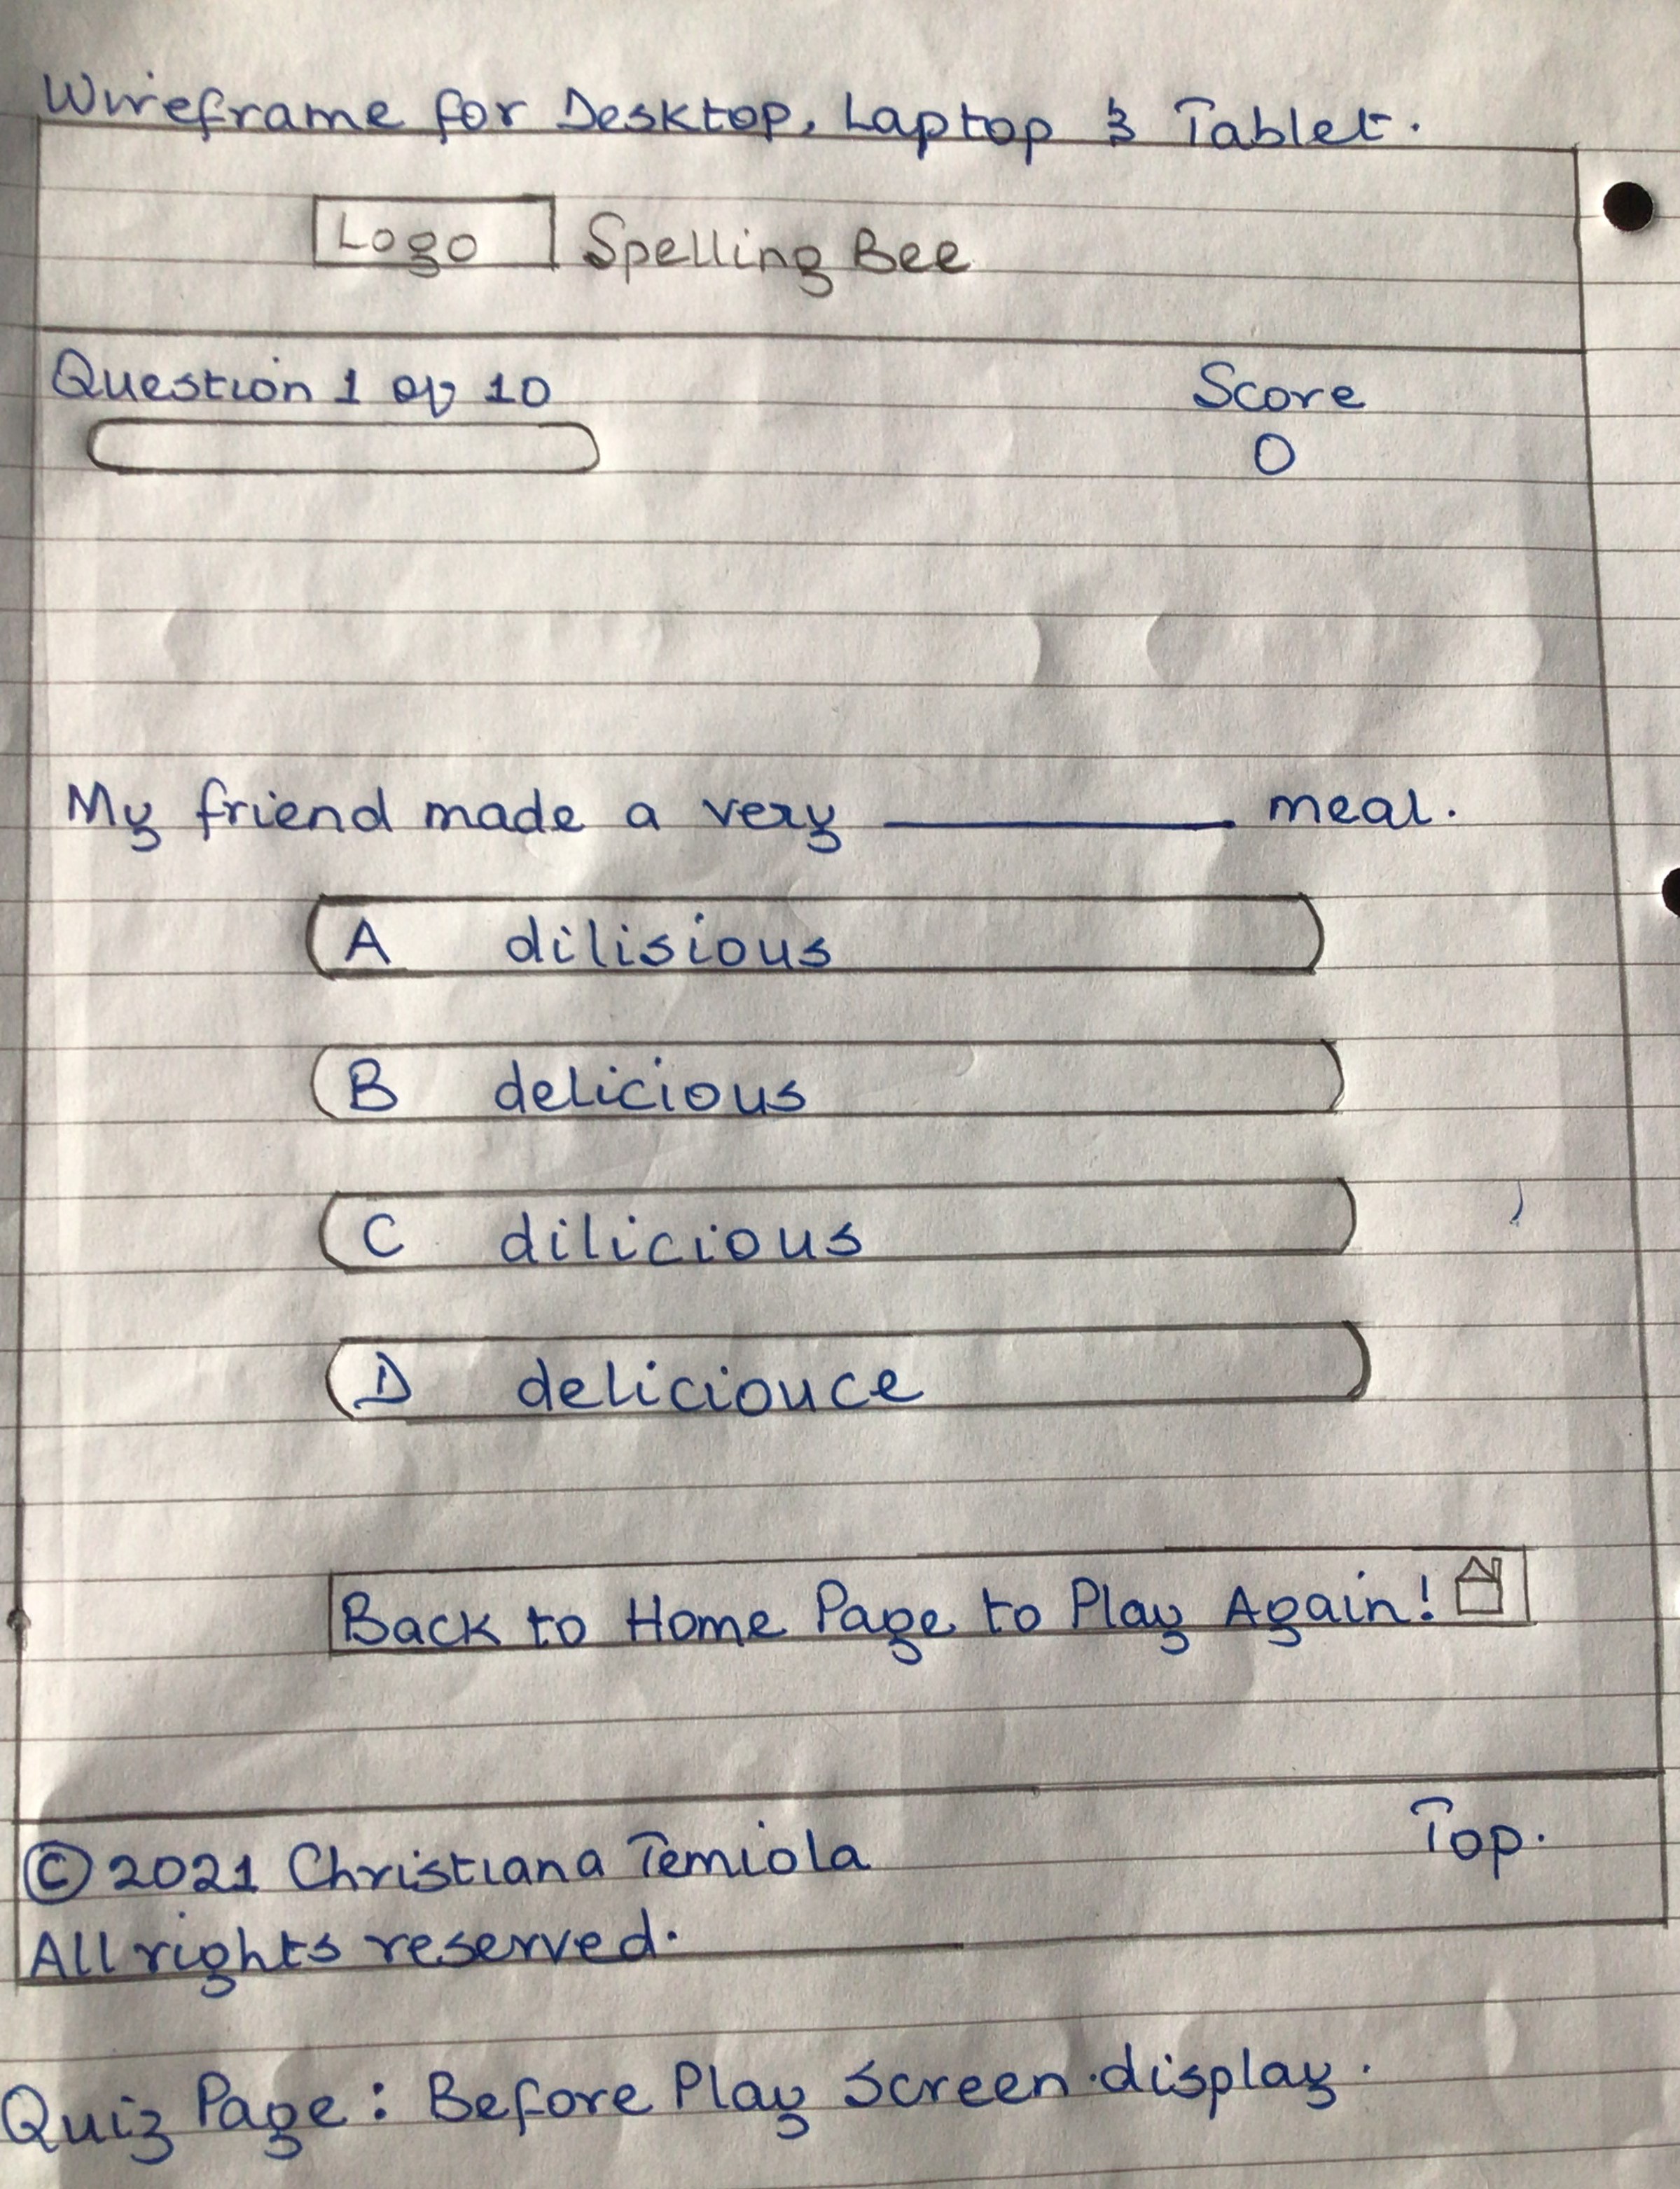 Wireframe for Desktop, Laptop & Tablet.
Logo Spelling Bee
Question 1 of 10 Score
0
My friend made a very ________ meal.
A dilisious
B delicious
C dilicious
D deliciouce
Back to Home Page to Play Again!
Top.
© 2021 Christiana Temiola
All rights reserved.
Quiz Page: Before Play Screen display.